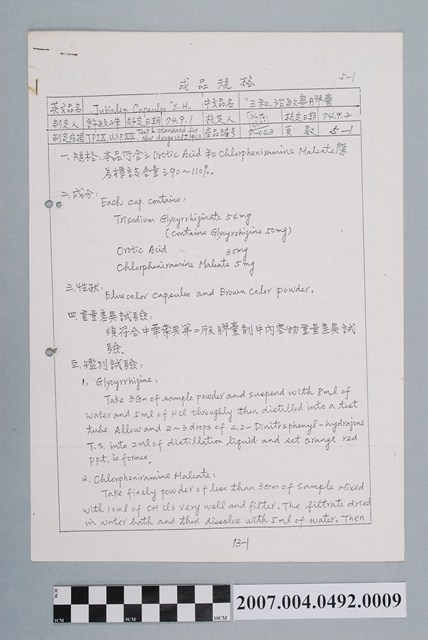 成品規格
5-1
英文品名 Jubinlen Capsules "S.H. 中文品名 "三和治敏寧膠囊
制定人 制定日期 74.9.1 核定人 核定日期 74.9.2
制定依據 TPIX USP XX Test & Standard for New drugs 產品編號 頁數 5-1
一.規格:本品所含之 Orotic Acid 和 Chlorpheniramine Maleate 應
為標誌含量之90~110%。
二.成分:
Each cap. contains:
Trisodium Glycyrrhizinate 56mg
(contains Glycyrrhizine 50mg)
Orotic Acid 30mg
Chlorpheniramine Maleate 5mg
三.性狀:
Blue color capsules and Brown color powder.
四.重量差異試驗:
須符合中華藥典第二版膠囊劑中內容物重量差異試
驗。
五.鑑別試驗:
1. Glycyrrhizine:
Take 3Gm of sample powder and suspend with 8ml of
water and 5ml of HCl throughly then distilled into a test
tube Allow and 2~3 drops of 2,2-Dinitrophenyl-hydrazine
T.S. into 2ml of distillation liquid and set orange red
ppt. is formes.
2. Chlorpheniramine Maleate:
Take finely powder of less than 30Gm of sample mixed
with 10ml of CHCl3 very well and filter. The filtrate dried
in water bath and then dissolve with 5ml of water. Then
13-1
0CM 5CM 10CM
2007.004.0492.0009